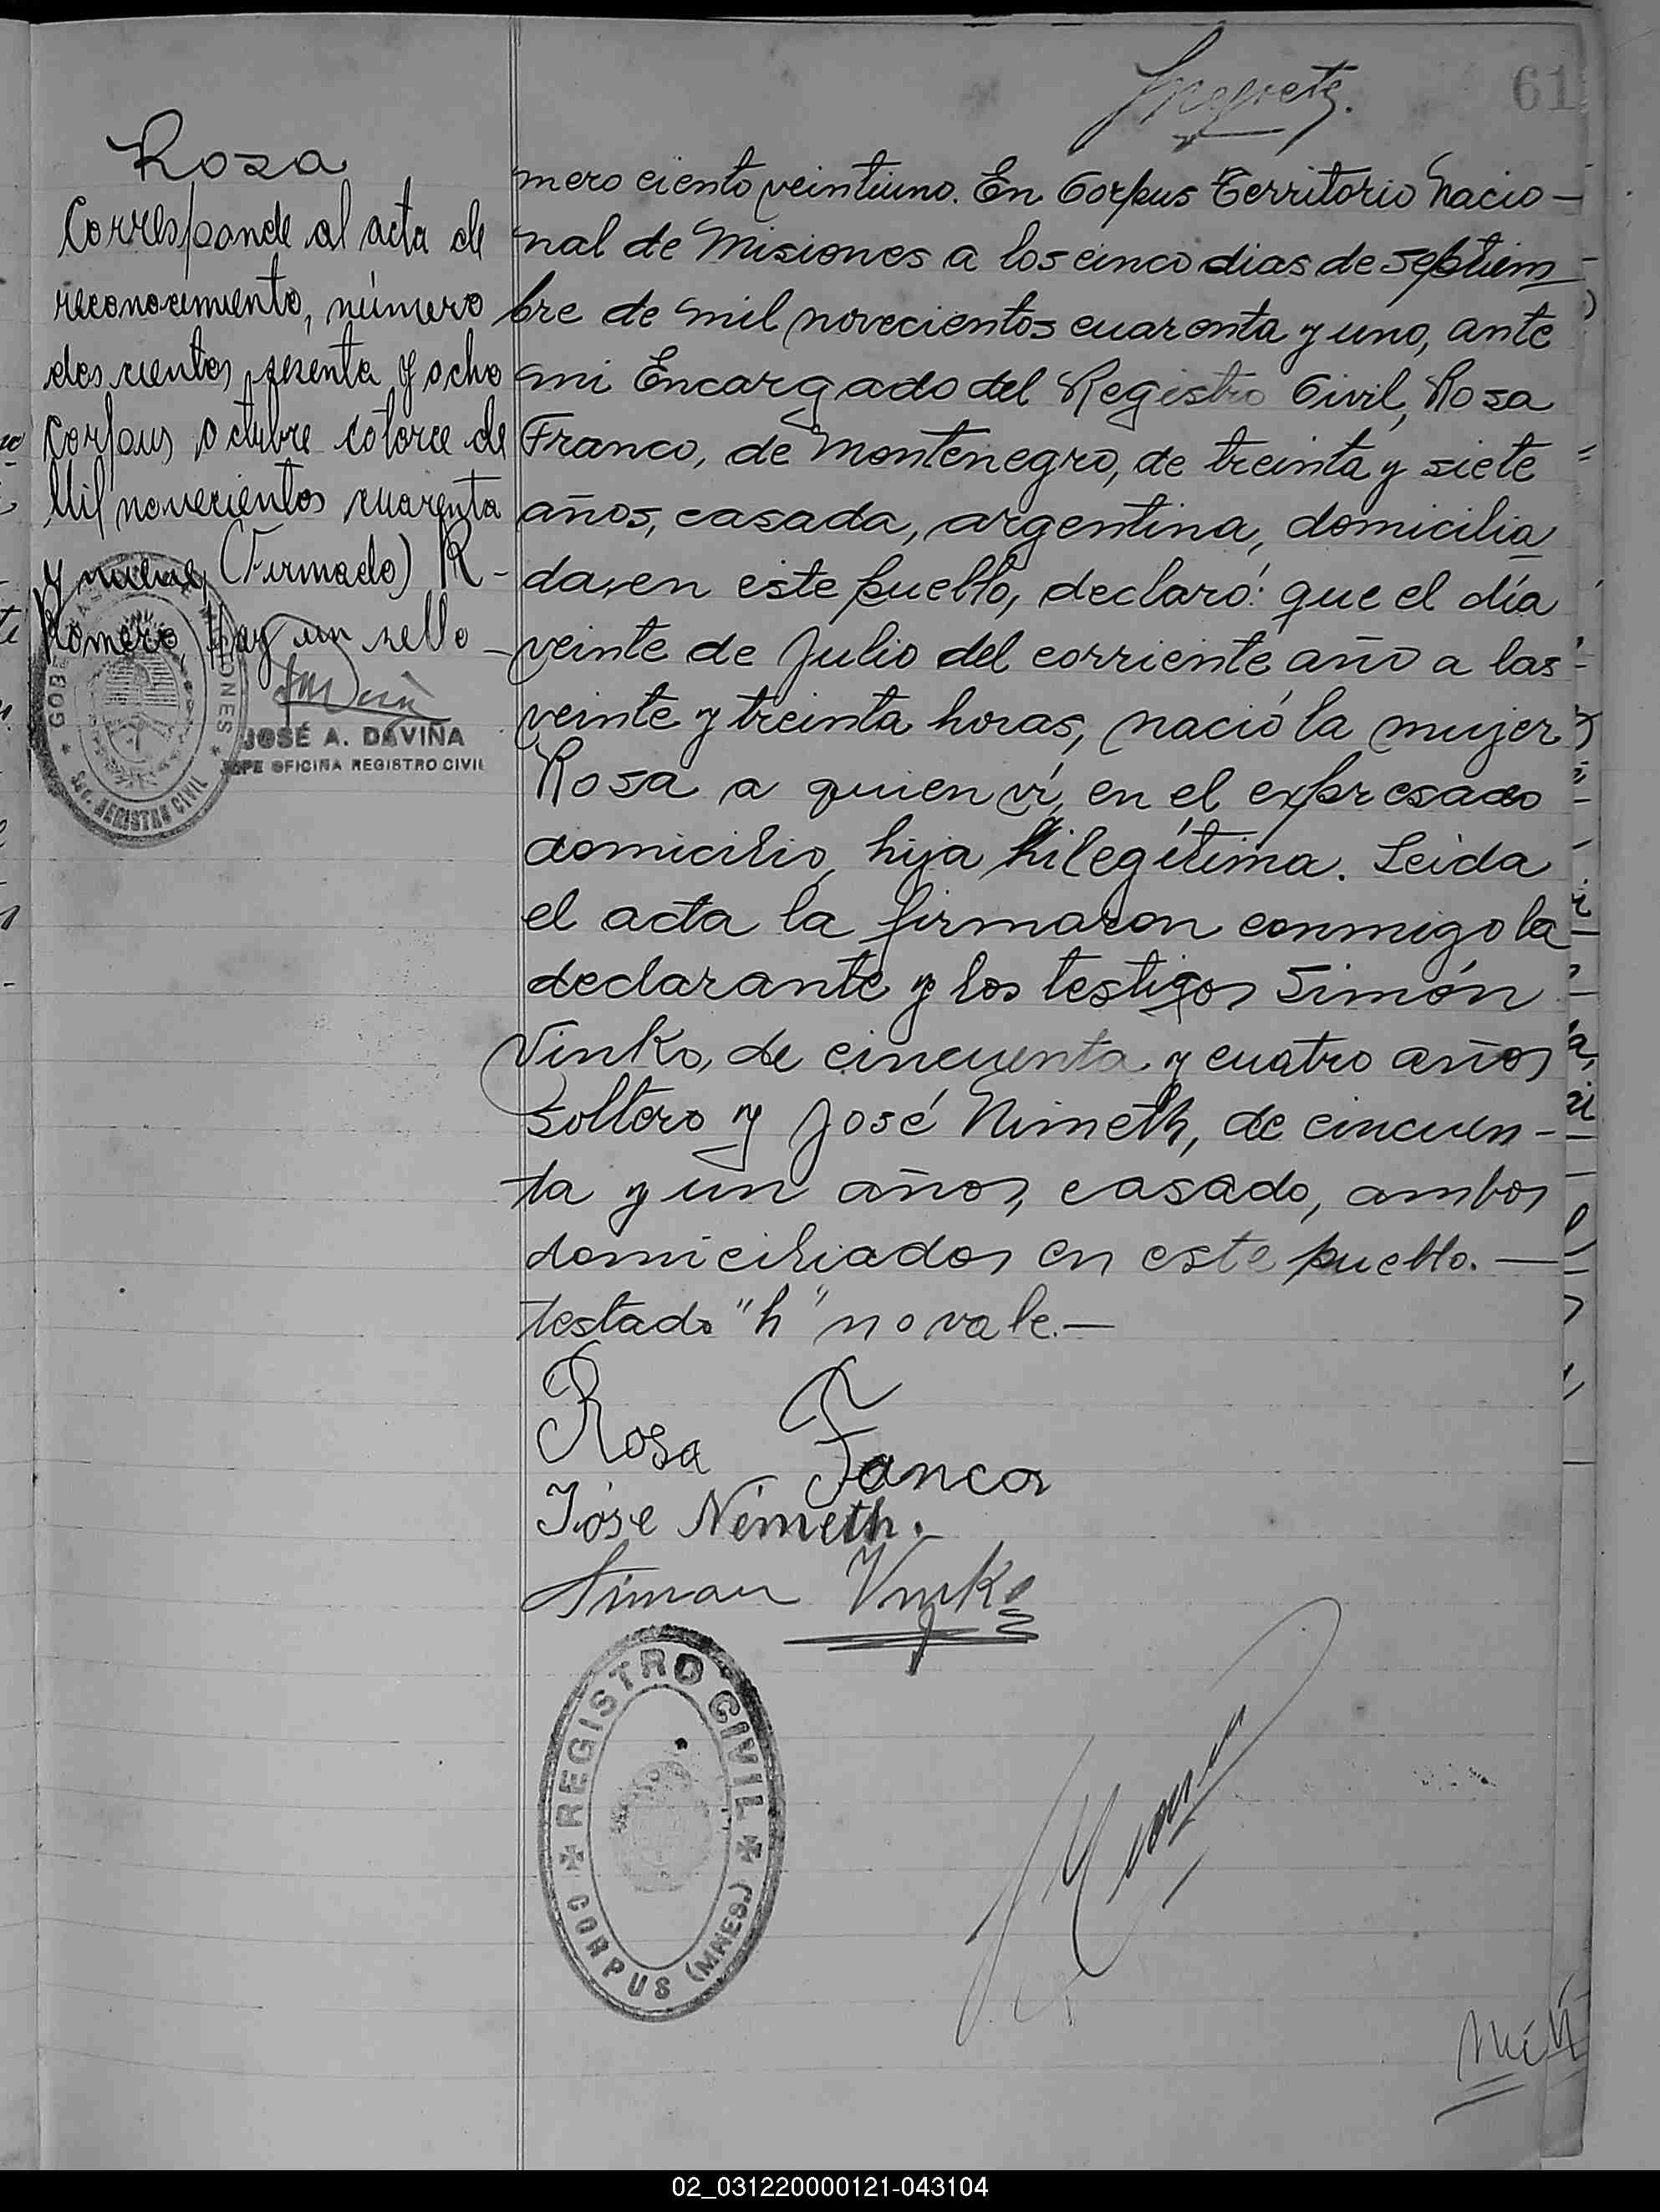 61
Rosa
Corresponde al acta de
reconocimiento, número
doscientos sesenta y ocho
Corpus octubre catorce de
Mil novecientos cuarenta
y nueve, (Firmado) R-
Romero, Hay un sello-
JOSÉ A. DAVIÑA
JEFE OFICINA REGISTRO CIVIL
GOBE NES
REGISTRO CIVIL
mero ciento veintiuno. En Corpus Territorio Nacio-
nal de Misiones a los cinco dias de septiem
bre de mil novecientos cuarenta y uno, ante
mi Encargado del Registro Civil, Rosa
Franco, de Montenegro, de treinta y siete
años, casada, argentina, domicilia
da, en este pueblo, declaró: que el día
veinte de Julio del corriente año a las
veinte y treinta horas, nació la mujer
Rosa a quien ví, en el expresado
domicilio, hija hilegítima. Leida
el acta la firmaron conmigo la
declarante y los testigos Simón
Vinko, de cincuenta y cuatro años
soltero y José Nimeth, de cincuen-
ta y un años, casado, ambos
domiciliados en este pueblo. —
testado "h" no vale.—
Rosa Fanco
José Németh.
Simon Vinko
REGISTRO CIVIL
CORPUS (MNES.)
02_031220000121-043104